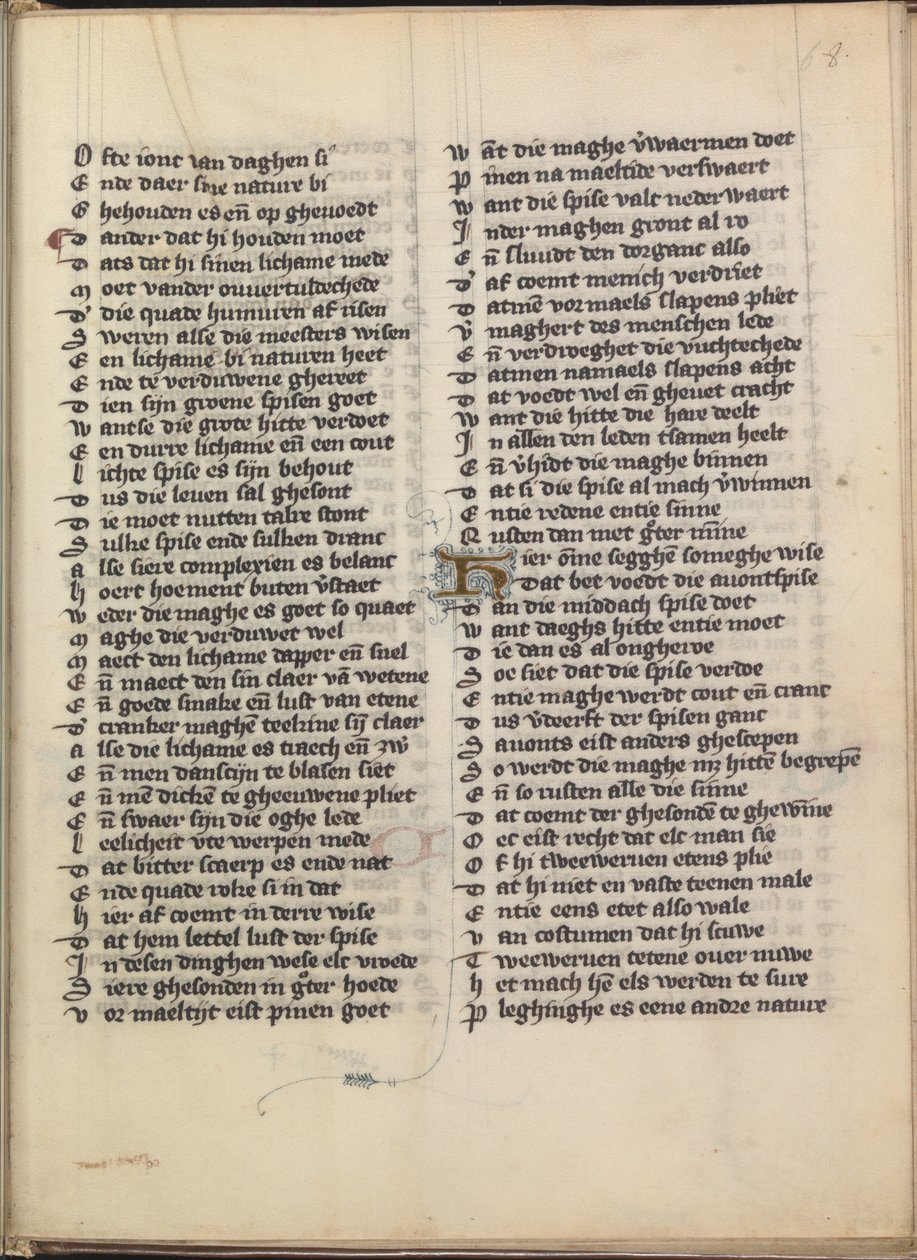 68.
O fte iont van daghen si
E nde daer sine nature bi
G hehouden es eñ op gheuoedt
D ander dat hi houden moet
D ats dat hi sinen lichame mede
M oet vander ouuertuldechede
D' die quade humuren af risen
S weren alse die meesters wisen
E en lichame bi naturen heet
E nde te verduwene ghereet
D ien sijn groene spisen goet
W antse die grote hitte verdoet
E en durre lichame eñ een cout
L ichte spise es sijn behout
D us die leuen sal ghesont
D ie moet nutten talre stont
S ulke spise ende sulken dranc
A lse siere complexien es belanc
H oert hoement buten v̉staet
W eder die maghe es goet so quaet
M aghe die verduwet wel
M aect den lichame dapper eñ snel
E ñ maect den sin claer vā wetene
E ñ goede smake eñ lust van etene
D' cranker maghē teekine sij̄ claer
A lse die lichame es traech eñ zw̉
E ñ men danscijn te blasen siet
E ñ mē dickē te gheeuwene pliet
E ñ swaer sijn die oghe lede
L eelicheit vte werpen mede
D at bitter scaerp es ende nat
E nde quade roke si in dat
H ier af coemt in derre wise
D at hem lettel lust der spise
I n desen dinghen wese elc vroede
S iere ghesonden in gͦter hoede
V or maeltijt eist pinen goet
W āt die maghe v̉waermen doet
P inen na maeltide verswaert
W ant die spise valt neder waert
I nder maghen gront al ro
E ñ sluudt den dorganc also
D' af coemt menich verdriet
D atmē vormaels slapens pliet
V̉ maghert des menschen lede
E ñ verdroeghet die vuchtechede
D atmen namaels slapens acht
D at voedt wel eñ gheuet cracht
W ant die hitte die hare deelt
I n allen den leden tsamen heelt
E ñ v̉hidt die maghe binnen
D at si die spise al mach v̉winnen
E ntie redene entie sinne
R usten dan met gͦter mi̅ne
H ier ōme segghē someghe wise
D at bet voedt die auontspise
D an die middach spise doet
W ant daeghs hitte entie moet
D ie dan es al ongherve
S oe siet dat die spise verdoe
E ntie maghe werdt cout eñ cranc
D us v̉deerft der spisen ganc
S auonts eist anders ghescepen
S o werdt die maghe mꝫ hittē begrepē
E ñ so rusten alle die sinne
D at coemt der ghesondē te ghewīne
O ec eist recht dat elc man sie
O f hi tweeweruen etens plie
D at hi niet en vaste teenen male
E ntie eens etet also wale
V an costumen dat hi scuwe
T weewerven tetene ouer nuwe
H et mach hē els werden te sure
P leghinghe es eene andre nature